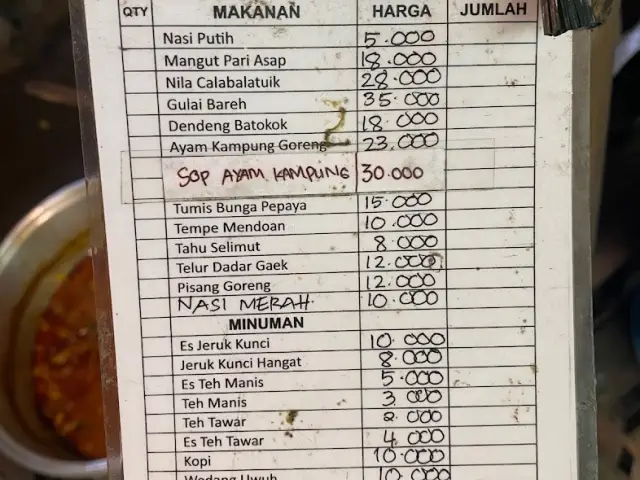 QTY MAKANAN HARGA JUMLAH
Nasi Putih 5.000
Mangut Pari Asap 18.000
Nila Calabalatuik 28.000
Gulai Bareh 35.000
Dendeng Batokok 18.000
Ayam Kampung Goreng 23.000
SOP AYAM KAMPUNG 30.000
Tumis Bunga Pepaya 15.000
Tempe Mendoan 10.000
Tahu Selimut 8.000
Telur Dadar Gaek 12.000
Pisang Goreng 12.000
NASI MERAH 10.000
MINUMAN
Es Jeruk Kunci 10.000
Jeruk Kunci Hangat 8.000
Es Teh Manis 5.000
Teh Manis 3.000
Teh Tawar 2.000
Es Teh Tawar 4.000
Kopi 10.000
Wedang Uwuh 10.000